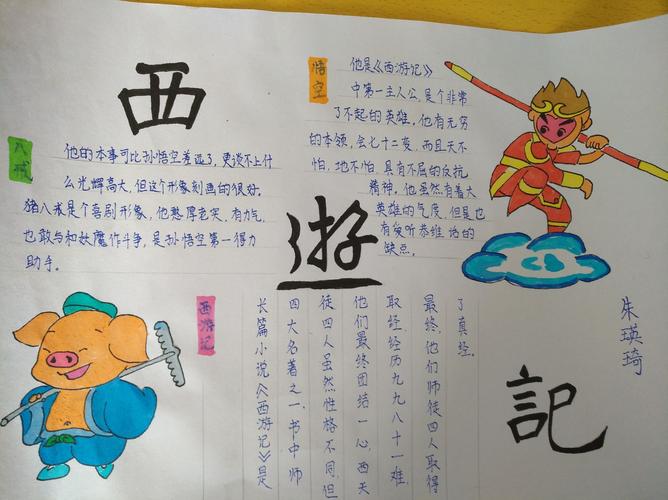 西
遊
記
悟空
他是《西游记》
中第一主人公,是个非常
了不起的英雄,他有无穷
的本领,会七十二变,而且天不
怕,地不怕,具有不屈的反抗
精神,他虽然有着大
英雄的气度,但是也
有爱听恭维话的
缺点.
八戒
他的本事可比孙悟空差远了,更谈不上什
么光辉高大,但这个形象刻画的很好.
猪八戒是个喜剧形象,他憨厚老实,有力气,
也敢与和妖魔作斗争,是孙悟空第一得力
助手。
西游记
长篇小说《西游记》是
四大名著之一.书中师
徒四人虽然性格不同,但
他们最终团结一心,西天
取经.经历九九八十一难,
最终,他们师徒四人取得
了真经.
朱瑛琦